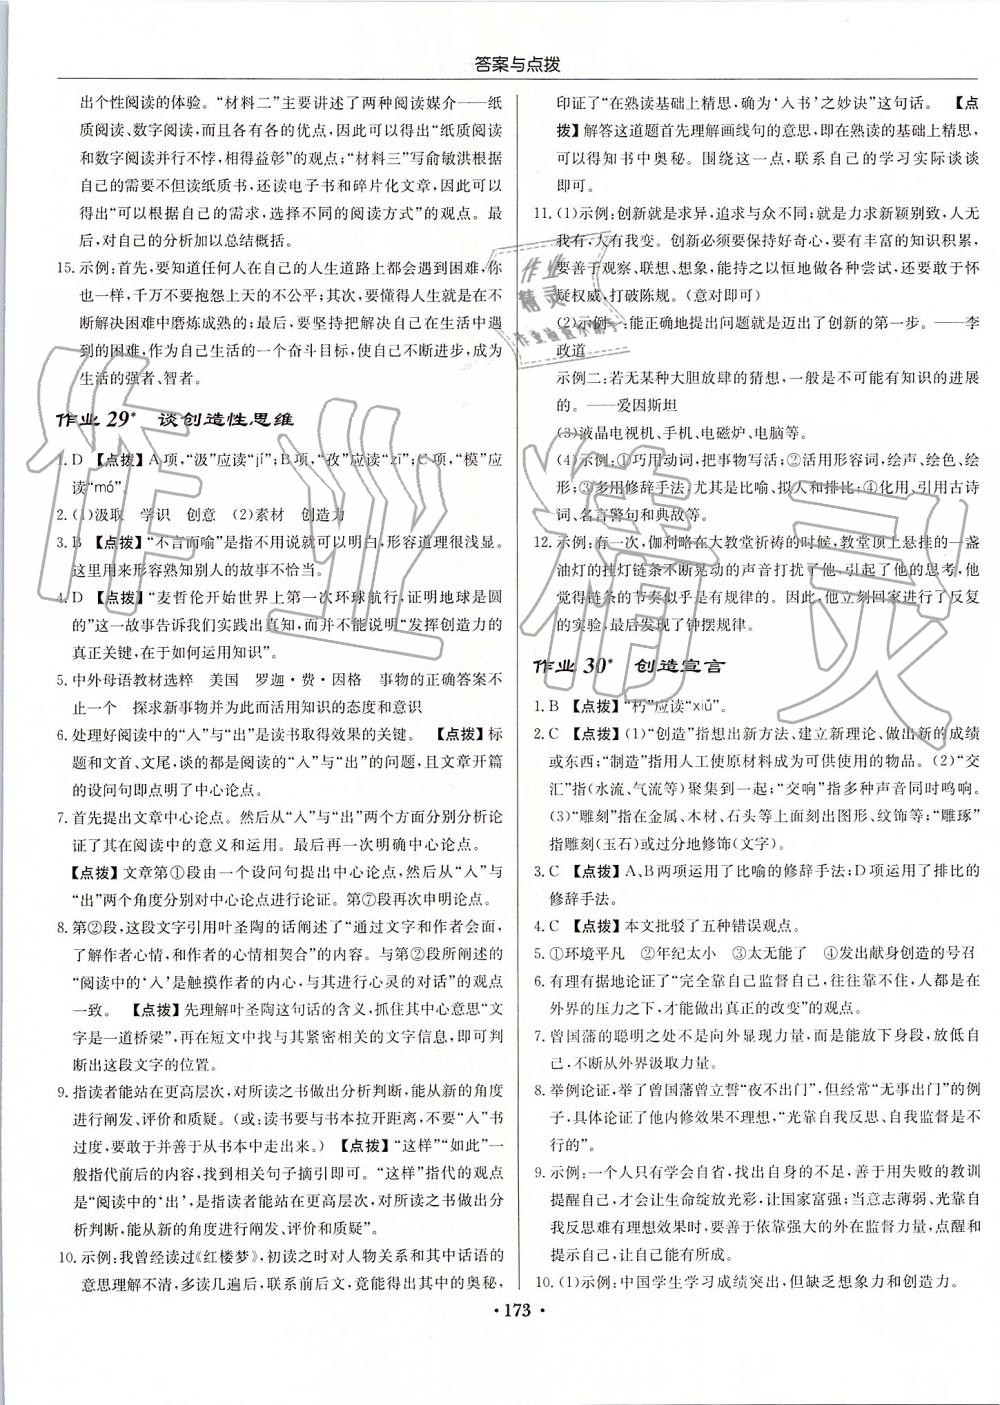 答案与点拨
出个性阅读的体验。“材料二”主要讲述了两种阅读媒介——纸
质阅读、数字阅读,而且各有各的优点,因此可以得出“纸质阅读
和数字阅读并行不悖,相得益彰”的观点;“材料三”写俞敏洪根据
自己的需要不但读纸质书,还读电子书和碎片化文章,因此可以
得出“可以根据自己的需求,选择不同的阅读方式”的观点。最
后,对自己的分析加以总结概括。
15. 示例:首先,要知道任何人在自己的人生道路上都会遇到困难,你
也一样,千万不要抱怨上天的不公平;其次,要懂得人生就是在不
断解决困难中磨炼成熟的;最后,要坚持把解决自己在生活中遇
到的困难,作为自己生活的一个奋斗目标,使自己不断进步,成为
生活的强者、智者。
作业 29* 谈创造性思维
1. D 【点拨】A项,“汲”应读“jí”;B项,“孜”应读“zī”;C项,“模”应
读“mó”。
2. (1)汲取 学识 创意 (2)素材 创造力
3. B 【点拨】“不言而喻”是指不用说就可以明白,形容道理很浅显。
这里用来形容熟知别人的故事不恰当。
4. D 【点拨】“麦哲伦开始世界上第一次环球航行,证明地球是圆
的”这一故事告诉我们实践出真知,而并不能说明“发挥创造力的
真正关键,在于如何运用知识”。
5. 中外母语教材选粹 美国 罗迦·费·因格 事物的正确答案不
止一个 探求新事物并为此而活用知识的态度和意识
6. 处理好阅读中的“入”与“出”是读书取得效果的关键。 【点拨】标
题和文首、文尾,谈的都是阅读的“入”与“出”的问题,且文章开篇
的设问句即点明了中心论点。
7. 首先提出文章中心论点。然后从“入”与“出”两个方面分别分析论
证了其在阅读中的意义和运用。最后再一次明确中心论点。
【点拨】文章第①段由一个设问句提出中心论点,然后从“入”与
“出”两个角度分别对中心论点进行论证。第⑦段再次申明论点。
8. 第②段,这段文字引用叶圣陶的话阐述了“通过文字和作者会面,
了解作者心情,和作者的心情相契合”的内容。与第②段所阐述的
“阅读中的‘入’是触摸作者的内心,与其进行心灵的对话”的观点
一致。 【点拨】先理解叶圣陶这句话的含义,抓住其中心意思“文
字是一道桥梁”,再在短文中找与其紧密相关的文字信息,即可判
断出这段文字的位置。
9. 指读者能站在更高层次,对所读之书做出分析判断,能从新的角度
进行阐发、评价和质疑。(或:读书要与书本拉开距离,不要“入”书
过度,要敢于并善于从书本中走出来。) 【点拨】“这样”“如此”一
般指代前后的内容,找到相关句子摘引即可。“这样”指代的观点
是“阅读中的‘出’,是指读者能站在更高层次,对所读之书做出分
析判断,能从新的角度进行阐发、评价和质疑”。
10. 示例:我曾经读过《红楼梦》,初读之时对人物关系和其中话语的
意思理解不清,多读几遍后,联系前后文,竟能得出其中的奥秘,
印证了“在熟读基础上精思,确为‘入书’之妙诀”这句话。 【点
拨】解答这道题首先理解画线句的意思,即在熟读的基础上精思,
可以得知书中奥秘。围绕这一点,联系自己的学习实际谈谈
即可。
11. (1)示例:创新就是求异,追求与众不同;就是力求新颖别致,人无
我有,人有我变。创新必须要保持好奇心,要有丰富的知识积累,
要善于观察、联想、想象,能持之以恒地做各种尝试,还要敢于怀
疑权威,打破陈规。(意对即可)
(2)示例一:能正确地提出问题就是迈出了创新的第一步。——李
政道
示例二:若无某种大胆放肆的猜想,一般是不可能有知识的进展
的。——爱因斯坦
(3)液晶电视机、手机、电磁炉、电脑等。
(4)示例:①巧用动词,把事物写活;②活用形容词,绘声、绘色、绘
形;③多用修辞手法,尤其是比喻、拟人和排比;④化用、引用古诗
词、名言警句和典故等。
12. 示例:有一次,伽利略在大教堂祈祷的时候,教堂顶上悬挂的一盏
油灯的挂灯链条不断晃动的声音打扰了他,引起了他的思考,他
觉得链条的节奏似乎是有规律的。因此,他立刻回家进行了反复
的实验,最后发现了钟摆规律。
作业 30* 创造宣言
1. B 【点拨】“朽”应读“xiǔ”。
2. C 【点拨】(1)“创造”指想出新方法、建立新理论、做出新的成绩
或东西;“制造”指用人工使原材料成为可供使用的物品。(2)“交
汇”指(水流、气流等)聚集到一起;“交响”指多种声音同时鸣响。
(3)“雕刻”指在金属、木材、石头等上面刻出图形、纹饰等;“雕琢”
指雕刻(玉石)或过分地修饰(文字)。
3. C 【点拨】A、B两项运用了比喻的修辞手法;D项运用了排比的
修辞手法。
4. C 【点拨】本文批驳了五种错误观点。
5. ①环境平凡 ②年纪太小 ③太无能了 ④发出献身创造的号召
6. 有理有据地论证了“完全靠自己监督自己,往往靠不住,人都是在
外界的压力之下,才能做出真正的改变”的观点。
7. 曾国藩的聪明之处不是向外显现力量,而是能放下身段,放低自
己,不断从外界汲取力量。
8. 举例论证,举了曾国藩曾立誓“夜不出门”,但经常“无事出门”的例
子,具体论证了他内修效果不理想,“光靠自我反思、自我监督是不
行的”。
9. 示例:一个人只有学会自省,找出自身的不足,善于用失败的教训
提醒自己,才会让生命绽放光彩,让国家富强;当意志薄弱、光靠自
我反思难有理想效果时,要善于依靠强大的外在监督力量,点醒和
提示自己,让自己能有所成。
10. (1)示例:中国学生学习成绩突出,但缺乏想象力和创造力。
• 173 •
作业精灵
作业
精灵